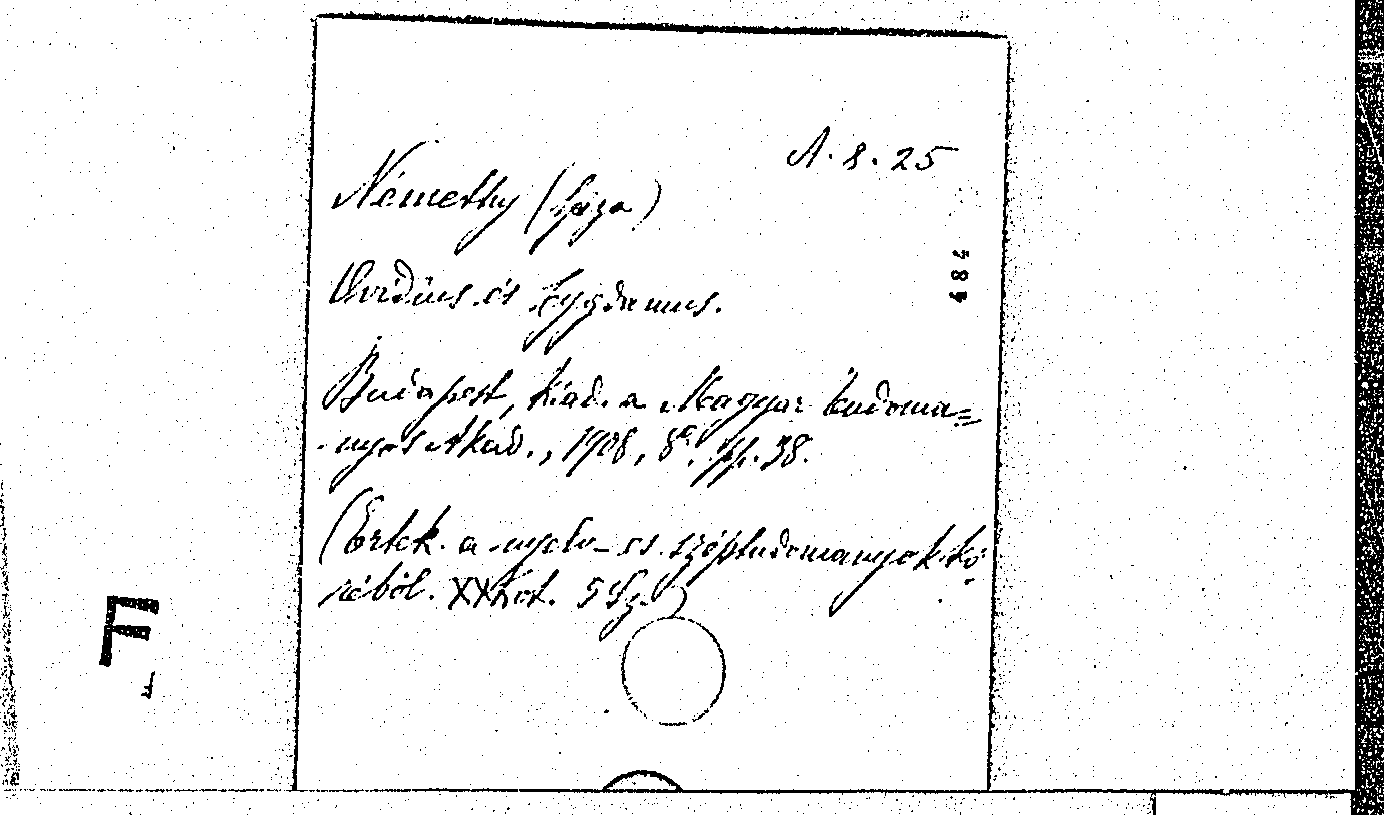 A. 8. 25
Némethy (Géza)
Ovidius és Lygdamus.
Budapest, kiad. a Magyar tudomá=
nyos Akad., 1906, 8º. pp. 38.
(Ertek. a nyelv- es széptudomanyok kö-
réböl. XX Köt. 5 Sz.)
484
F